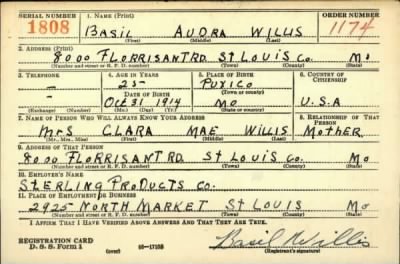 SERIAL NUMBER 1. Name (Print) ORDER NUMBER
1808 BASIL AUDRA WILLIS 1174
(First) (Middle) (Last)
2. Address (Print)
8000 FLORRISANT RD. ST LOUIS Co. Mo
(Number and street or R. F. D. number) (Town) (County) (State)
3. Telephone 4. Age in Years 5. Place of Birth 6. Country of Citizenship
— 25 PUXICO
Date of Birth (Town or county)
— Oct 31 1914 Mo U.S.A
(Exchange) (Number) (Mo.) (Day) (Yr.) (State or country)
7. Name of Person Who Will Always Know Your Address 8. Relationship of That Person
MRS CLARA MAE WILLIS MOTHER
(Mr., Mrs., Miss) (First) (Middle) (Last)
9. Address of That Person
8000 FLORRISANT RD. ST LOUIS Co. Mo
(Number and street or R. F. D. number) (Town) (County) (State)
10. Employer's Name
STERLING PRODUCTS Co.
11. Place of Employment or Business
2925 NORTH MARKET ST LOUIS Mo
(Number and street or R. F. D. number) (Town) (County) (State)
I Affirm That I Have Verified Above Answers and That They Are True.
REGISTRATION CARD
D. S. S. Form 1 (over) 16—17105 Basil A Willis
(Registrant's signature)